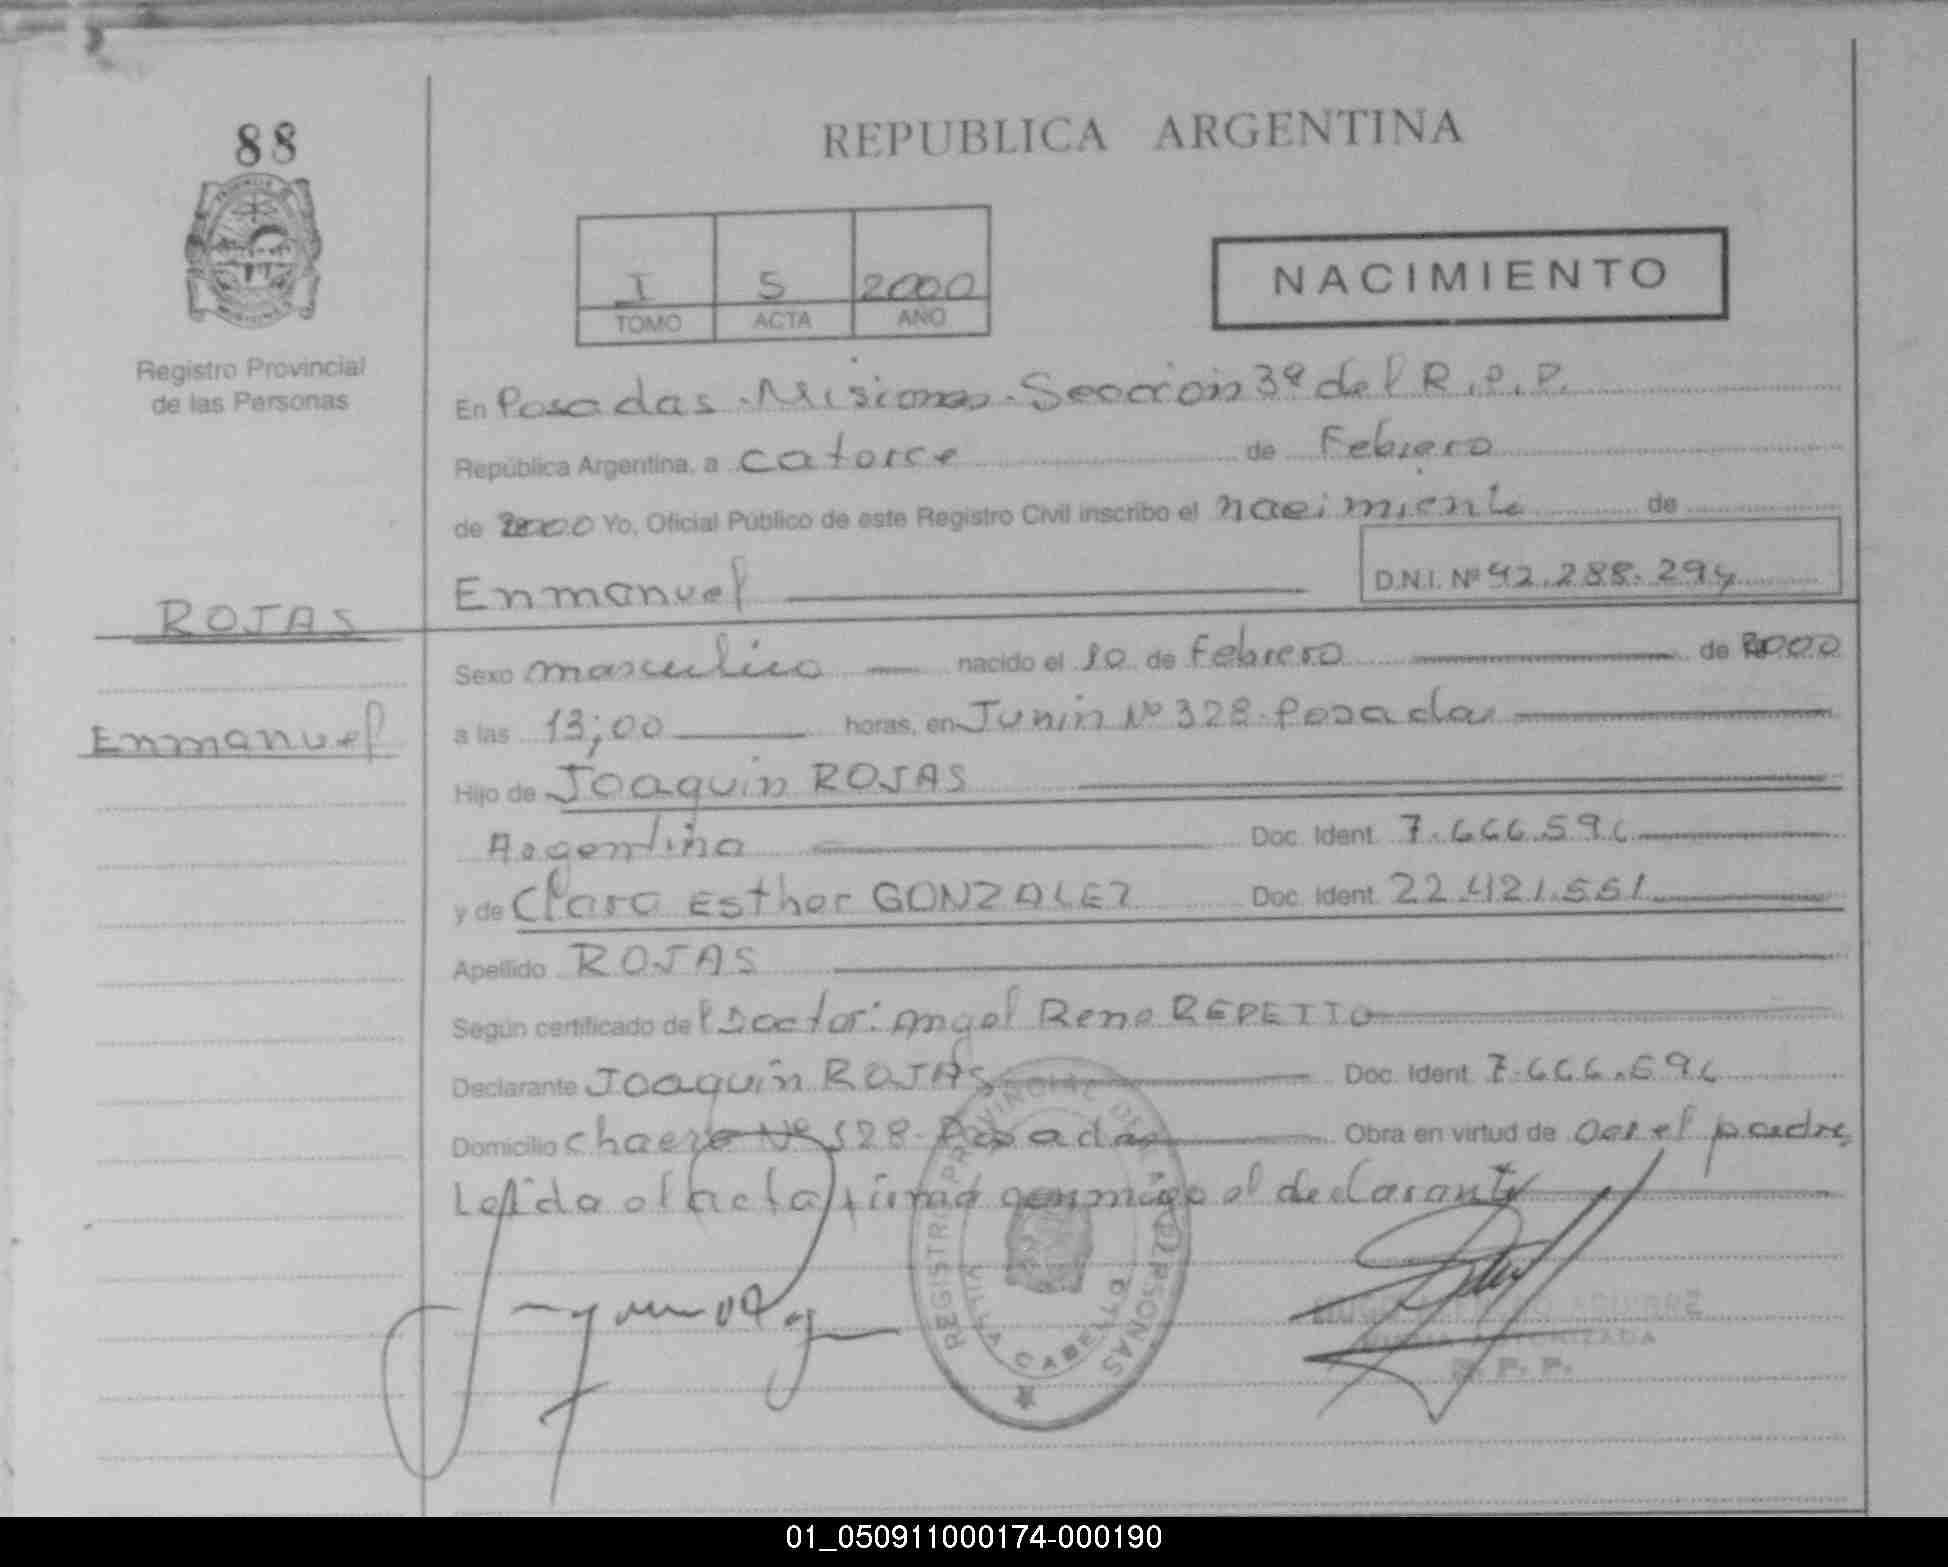 88
REPUBLICA ARGENTINA
I 5 2000
TOMO ACTA AÑO
NACIMIENTO
Registro Provincial
de las Personas
En Posadas - Misiones - Sección 3ª del R.P.P.
República Argentina, a catorce de Febrero
de 2000 Yo, Oficial Público de este Registro Civil inscribo el nacimiento de
Enmanuel D.N.I. Nº 42.288.294
ROJAS
Sexo masculino nacido el 10 de Febrero de 2000
Enmanuel
a las 13;00 horas, en Junin Nº 328 - Posadas
Hijo de Joaquín ROJAS
Argentina Doc. Ident. 7.666.596
y de Clara Esther GONZALEZ Doc. Ident. 22.421.551
Apellido ROJAS
Según certificado del Doctor: Angel Rene REPETTO
Declarante Joaquín ROJAS Doc. Ident. 7.666.596
Domicilio Nº 128 - Posadas Obra en virtud de ser el padre,
Leída el acta firma conmigo el declarante
REGISTRO PROVINCIAL DE LAS PERSONAS
VILLA CABELLO
AGUIRRE
FIRMA AUTORIZADA
R.P.P.
01_050911000174-000190